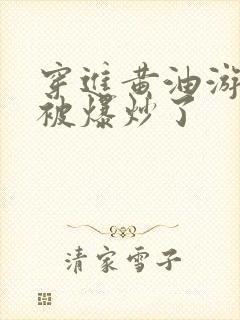 穿进黄油游
被爆炒了
清家雪子